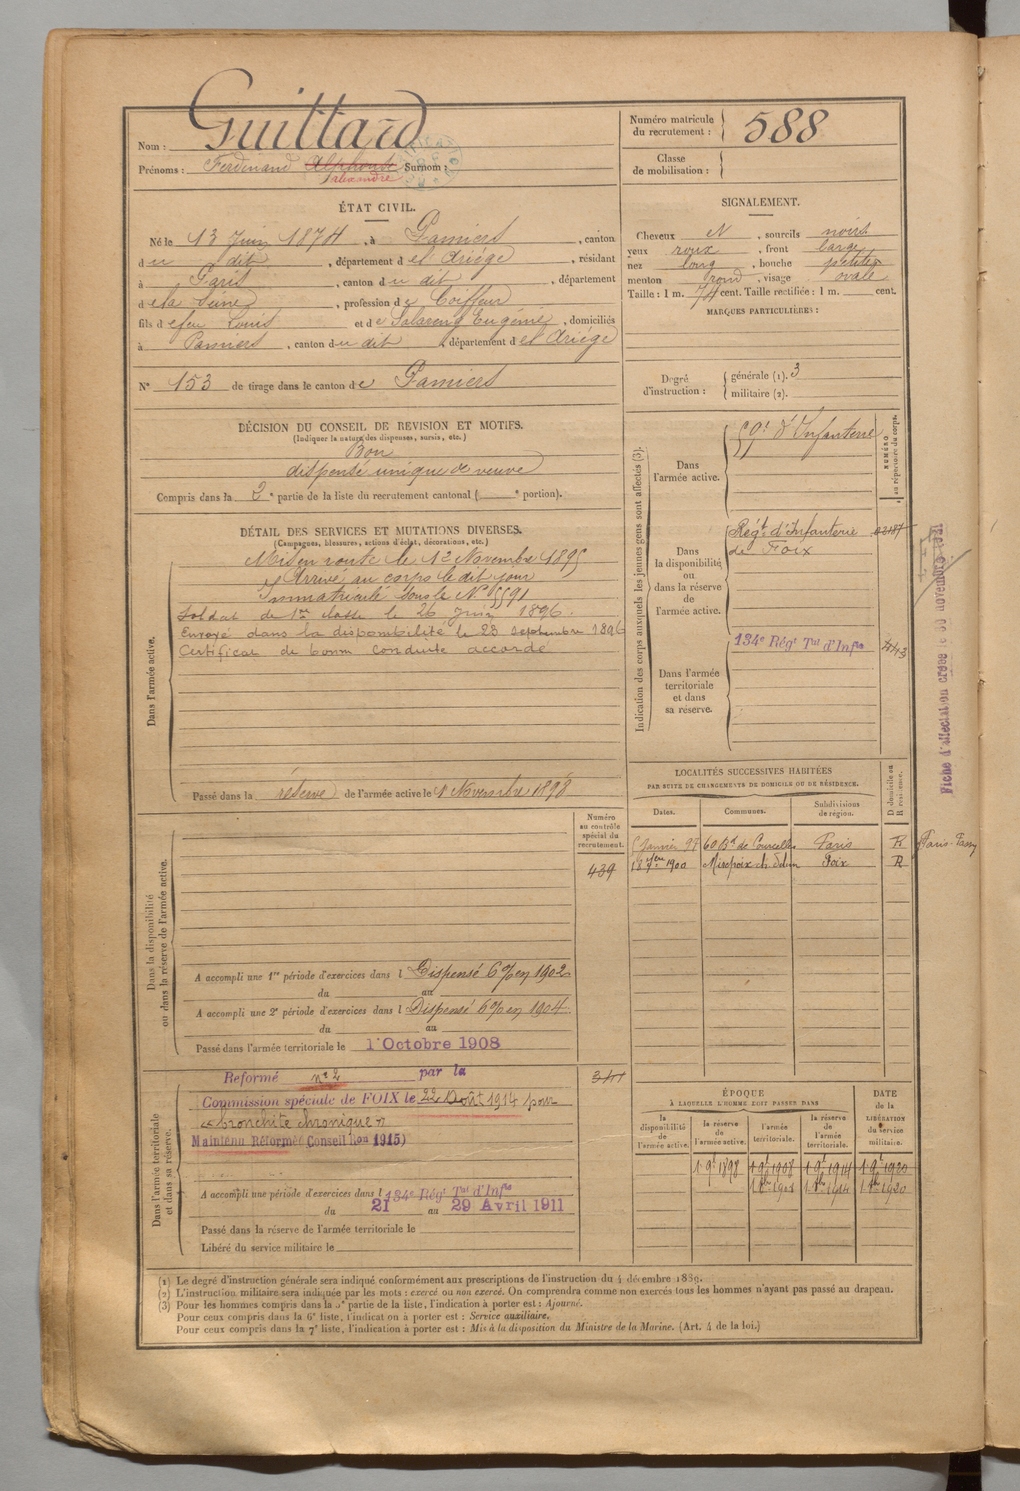 Nom : Guittard
Prénoms : Ferdinand Alphonse Surnom :
Alexandre
ÉTAT CIVIL.
Né le 13 Juin 1874, à Pamiers, canton
du dit, département de l'Ariège, résidant
à Paris, canton du dit, département
de la Seine, profession de Coiffeur
fils de feu Louis et de Eugénie, domiciliés
à Pamiers, canton du dit, département de l'Ariège
N° 153 de tirage dans le canton de Pamiers
DÉCISION DU CONSEIL DE REVISION ET MOTIFS.
(Indiquer la nature des dispenses, sursis, etc.)
Bon
dispensé unique de veuve
Compris dans la 2e partie de la liste du recrutement cantonal ( e portion).
DÉTAIL DES SERVICES ET MUTATIONS DIVERSES.
(Campagnes, blessures, actions d'éclat, décorations, etc.)
Dans l'armée active.
Mis en route le 12 Novembre 1895
Arrivé au corps le dit jour
Immatriculé sous le N° 5591
Soldat de 1re classe le 26 Juin 1896.
Envoyé dans la disponibilité le 23 Septembre 1896
Certificat de bonne conduite accordé
Passé dans la réserve de l'armée active le 1 Novembre 1898
Numéro au contrôle spécial du recrutement.
439
Dans la disponibilité ou dans la réserve de l'armée active.
A accompli une 1re période d'exercices dans l Dispensé 6% en 1902
du au
A accompli une 2e période d'exercices dans l Dispensé 6% en 1904
du au
Passé dans l'armée territoriale le 1r Octobre 1908
Dans l'armée territoriale et dans sa réserve.
Reformé n° 2 par la
Commission spéciale de FOIX le 22 Août 1914 pour
« bronchite chronique »
Maintenu Réformé Conseil 1915)
A accompli une période d'exercices dans l 134e Régt Tal d'Infie
du 21 au 29 Avril 1911
Passé dans la réserve de l'armée territoriale le
Libéré du service militaire le
Numéro matricule du recrutement : 588
Classe de mobilisation :
SIGNALEMENT.
Cheveux et, sourcils noirs
yeux roux, front large
nez long, bouche petite
menton rond, visage ovale
Taille : 1 m. 74 cent. Taille rectifiée : 1 m. cent.
MARQUES PARTICULIÈRES :
Degré d'instruction : générale (1). 3
militaire (2).
Indication des corps auxquels les jeunes gens sont affectés (3).
NUMÉRO au répertoire du corps.
Dans l'armée active.
59e d'Infanterie
Dans la disponibilité ou dans la réserve de l'armée active.
Régt d'Infanterie
de Foix
Dans l'armée territoriale et dans sa réserve.
134e Régt Tal d'Infie
Fiche d'affectation créée le novembre 1931
LOCALITÉS SUCCESSIVES HABITÉES
PAR SUITE DE CHANGEMENTS DE DOMICILE OU DE RÉSIDENCE.
Dates. Communes. Subdivisions de région. D domicile ou R résidence.
5 Janvier 97 60 Bd de Courcelles Paris R Paris-Passy
1900 Mirepoix Foix R
ÉPOQUE
À LAQUELLE L'HOMME DOIT PASSER DANS
DATE de la LIBÉRATION du service militaire.
la disponibilité de l'armée active. la réserve de l'armée active. l'armée territoriale. la réserve de l'armée territoriale.
1 9bre 1898 1 9bre 1908 1 9bre 1914 1 9bre 1920
(1) Le degré d'instruction générale sera indiqué conformément aux prescriptions de l'instruction du 4 décembre 1889.
(2) L'instruction militaire sera indiquée par les mots : exercé ou non exercé. On comprendra comme non exercés tous les hommes n'ayant pas passé au drapeau.
(3) Pour les hommes compris dans la 5e partie de la liste, l'indication à porter est : Ajourné.
Pour ceux compris dans la 6e liste, l'indication à porter est : Service auxiliaire.
Pour ceux compris dans la 7e liste, l'indication à porter est : Mis à la disposition du Ministre de la Marine. (Art. 4 de la loi.)